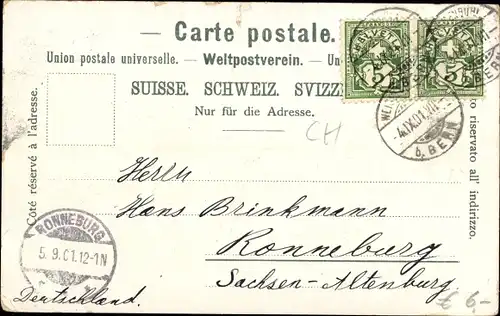 Carte postale.
Union postale universelle. – Weltpostverein. – Un
SUISSE. SCHWEIZ. SVIZZ
Nur für die Adresse.
Côté réservé à l'adresse.
riservato all' indirizzo.
HELVETIA
5
5
-4.IX.01.VII-
b. BERN
CH
Herrn
Hans Brinkmann
Ronneburg
Sachsen-Altenburg
Deutschland.
RONNEBURG
5.9.01.12-1N
€ 6,-